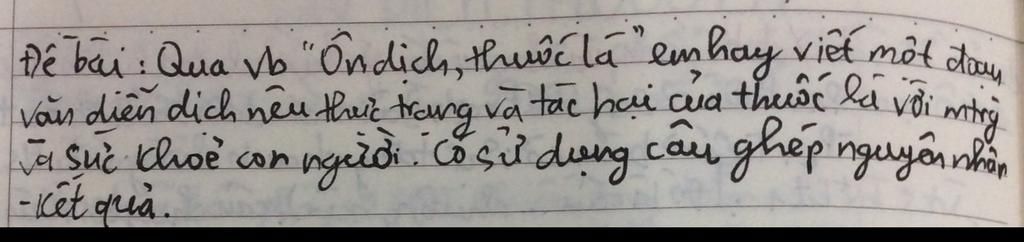 Đề bài: Qua vb "Ôn dịch, thuốc lá" em hay viết một đoạn
văn diễn dịch nêu thực trạng và tác hại của thuốc lá với mtrg
và sức khoẻ con người. Có sử dụng câu ghép nguyên nhân
- kết quả.